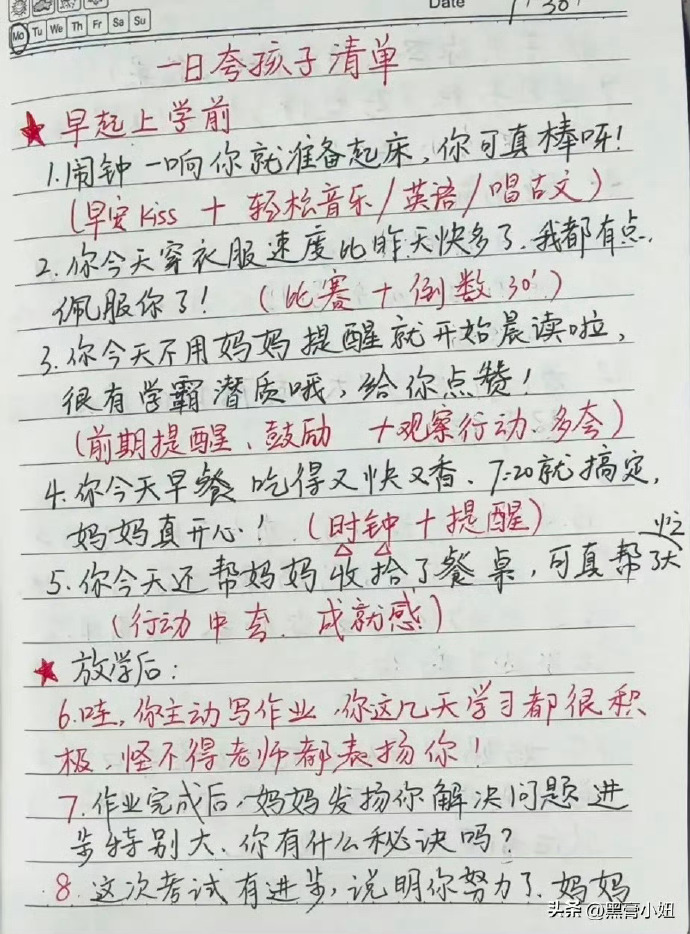 Date 1/30
Mo Tu We Th Fr Sa Su
一日夸孩子清单
★ 早起上学前
1.闹钟一响你就准备起床,你可真棒呀!
(早安kiss + 轻松音乐/英语/唱古文)
2.你今天穿衣服速度比昨天快多了.我都有点
佩服你了! (比赛+倒数30')
3.你今天不用妈妈提醒就开始晨读啦,
很有学霸潜质哦,给你点赞!
(前期提醒、鼓励 +观察行动、多夸)
4.你今天早餐吃得又快又香、7:20就搞定,
妈妈真开心! (时钟+提醒)
忙
5.你今天还帮妈妈收拾了餐桌,可真帮了大
(行动中夸.成就感)
★ 放学后:
6.哇,你主动写作业,你这几天学习都很积
极、怪不得老师都表扬你!
7.作业完成后,妈妈发扬你解决问题进
步特别大、你有什么秘诀吗?
8.这次考试有进步,说明你努力了、妈妈
头条 @黑膏小妞